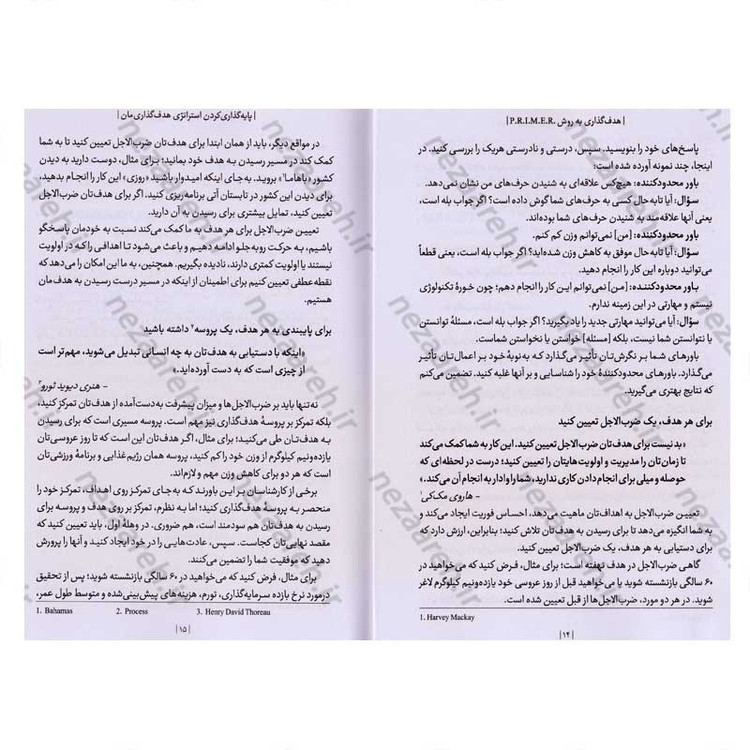 | هدف‌گذاری به روش P.R.I.M.E.R. |
پاسخ‌های خود را بنویسید. سپس، درستی و نادرستی هریک را بررسی کنید. در
اینجا، چند نمونه آورده شده است:
باور محدودکننده: هیچ‌کس علاقه‌ای به شنیدن حرف‌های من نشان نمی‌دهد.
سؤال: آیا تا به حال کسی به حرف‌های شما گوش داده است؟ اگر جواب بله است،
یعنی آنها علاقه‌مند به شنیدن حرف‌های شما بوده‌اند.
باور محدودکننده: [من] نمی‌توانم وزن کم کنم.
سؤال: آیا تا به حال موفق به کاهش وزن شده‌اید؟ اگر جواب بله است، یعنی قطعاً
می‌توانید دوباره این کار را انجام دهید.
باور محدودکننده: [من] نمی‌توانم این کار را انجام دهم؛ چون خورهٔ تکنولوژی
نیستم و مهارتی در این زمینه ندارم.
سؤال: آیا می‌توانید مهارتی جدید را یاد بگیرید؟ اگر جواب بله است، مسئلهٔ توانستن
یا نتوانستن شما نیست، بلکه [مسئله] خواستن یا نخواستن شماست.
باورهای شما بر نگرش‌تان تأثیر می‌گذارد که به‌نوبهٔ خود بر اعمال‌تان تأثیر
می‌گذارد. باورهای محدودکنندهٔ خود را شناسایی و بر آنها غلبه کنید. تضمین می‌کنم
که نتایج بهتری می‌گیرید.
برای هر هدف، یک ضرب‌الاجل تعیین کنید
«بد نیست برای هدف‌تان ضرب‌الاجل تعیین کنید. این کار به شما کمک می‌کند
تا زمان‌تان را مدیریت و اولویت‌هایتان را تعیین کنید؛ درست در لحظه‌ای که
حوصله و میلی برای انجام دادن کاری ندارید، شما را وادار به انجام آن می‌کند.»
- هاروی مک‌کی۱
تعیین ضرب‌الاجل به اهداف‌تان ماهیت می‌دهد، احساس فوریت ایجاد می‌کند و
به شما انگیزه می‌دهد تا برای رسیدن به هدف‌تان تلاش کنید؛ بنابراین، ارزش دارد که
برای دستیابی به هر هدف، یک ضرب‌الاجل تعیین کنید.
گاهی ضرب‌الاجل در هدف نهفته است؛ برای مثال، فرض کنید که می‌خواهید در
۶۰ سالگی بازنشسته شوید یا می‌خواهید قبل از روز عروسی خود یازده‌ونیم کیلوگرم لاغر
شوید. در هر دو مورد، ضرب‌الاجل‌ها از قبل تعیین شده است.
1. Harvey Mackay
| ۱۴ |
| پایه‌گذاری کردن استراتژی هدف‌گذاری‌مان |
در مواقع دیگر، باید از همان ابتدا برای هدف‌تان ضرب‌الاجل تعیین کنید تا به شما
کمک کند در مسیر رسیدن به هدف خود بمانید؛ برای مثال، دوست دارید به دیدن
کشور «باهاما۱» بروید. به جای اینکه امیدوار باشید «روزی» این کار را انجام بدهید،
برای دیدن این کشور در تابستان آتی برنامه ریزی کنید. اگر برای هدف‌تان ضرب‌الاجل
تعیین کنید، تمایل بیشتری برای رسیدن به آن دارید.
تعیین ضرب‌الاجل برای هر هدف به ما کمک می‌کند نسبت به خودمان پاسخگو
باشیم، به حرکت رو به جلو ادامه دهیم و باعث می‌شود تا اهدافی را که در اولویت
نیستند یا اولویت کمتری دارند، نادیده بگیریم. همچنین، به ما این امکان را می‌دهد که
نقطه‌عطفی تعیین کنیم برای اطمینان از اینکه در مسیر درست رسیدن به هدف‌مان
هستیم.
برای پایبندی به هر هدف، یک پروسه۲ داشته باشید
«اینکه با دستیابی به هدف‌تان به چه انسانی تبدیل می‌شوید، مهم‌تر است
از چیزی است که به دست آورده‌اید.»
- هنری دیوید ثورو۳
نه‌تنها باید بر ضرب‌الاجل‌ها و میزان پیشرفت به‌دست‌آمده از هدف‌تان تمرکز کنید،
بلکه تمرکز بر پروسهٔ هدف‌گذاری نیز مهم است. پروسه مسیری است که برای رسیدن
به هدف‌تان طی می‌کنید؛ برای مثال، اگر هدف‌تان این است که تا روز عروسی‌تان
یازده‌ونیم کیلوگرم از وزن خود را کم کنید، پروسه همان رژیم‌غذایی و برنامهٔ ورزشی‌تان
است که هر دو برای کاهش وزن مهم و لازم‌اند.
برخی از کارشناسان بر این باورند که به‌جای تمرکز روی اهداف، تمرکز خود را
منحصر به پروسهٔ هدف‌گذاری کنید؛ اما به نظرم، تمرکز بر روی هدف و پروسه برای
رسیدن به هدف‌تان هم سودمند است، هم ضروری. در وهلهٔ اول، باید تعیین کنید که
مقصد نهایی‌تان کجاست. سپس، عادت‌هایی را در خود ایجاد کنید و آنها را پرورش
دهید که موفقیت شما را تضمین می‌کنند.
برای مثال، فرض کنید که می‌خواهید در ۶۰ سالگی بازنشسته شوید؛ پس از تحقیق
درمورد نرخ بازده سرمایه‌گذاری، تورم، هزینه‌های پیش‌بینی‌شده و متوسط طول عمر،
1. Bahamas 2. Process 3. Henry David Thoreau
| ۱۵ |
nezaareh.ir